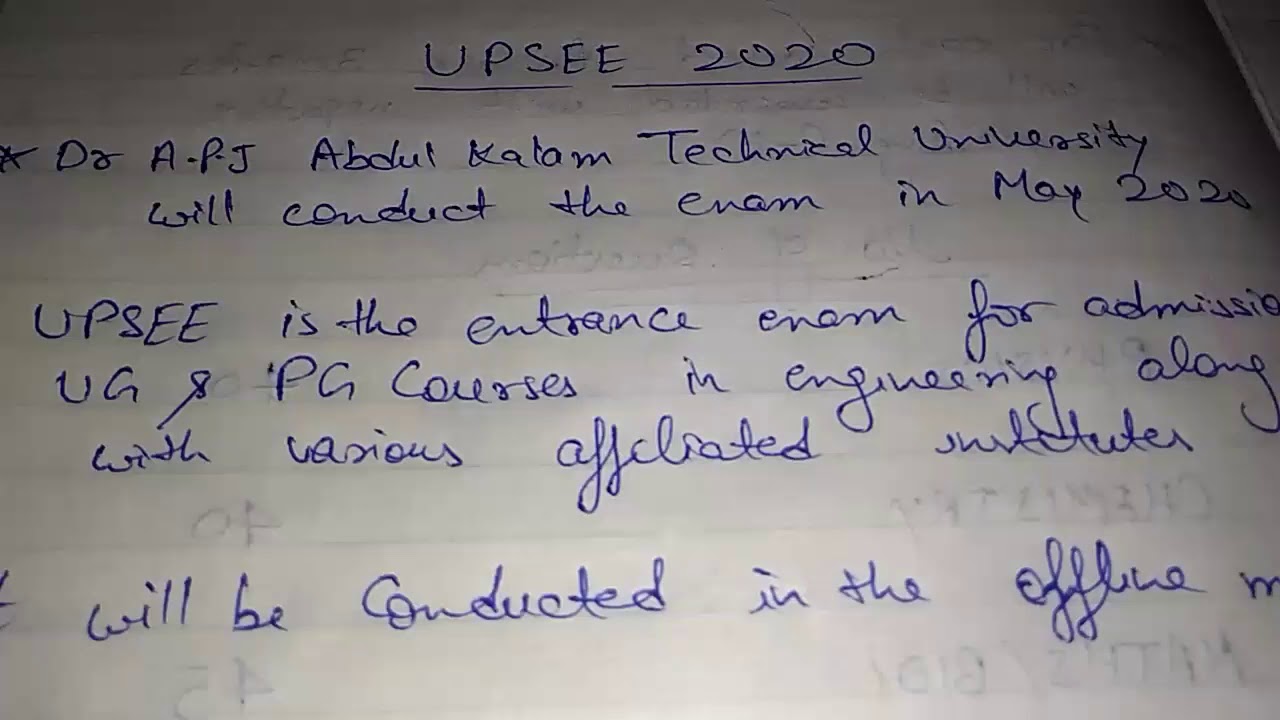 UPSEE 2020
* Dr A.P.J Abdul Kalam Technical University
will conduct the exam in May 2020
UPSEE is the entrance exam for admissio
UG & PG Courses in engineering along
with various affiliated institutes
t will be Conducted in the offline m